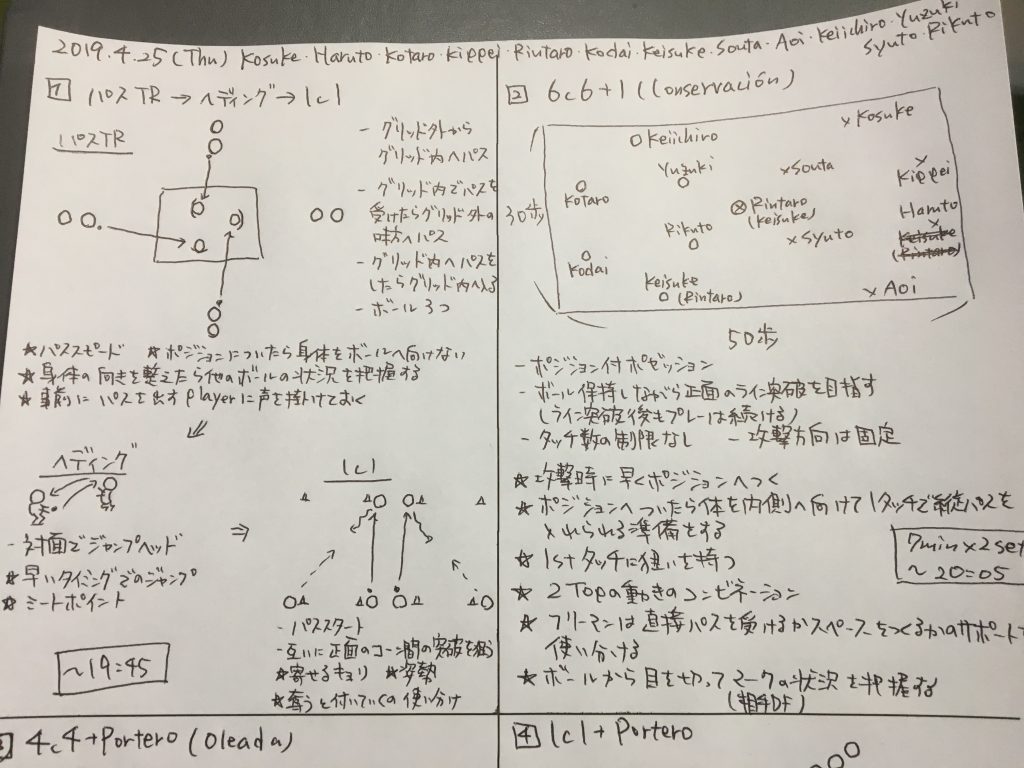 2019.4.25(Thu) Kosuke・Haruto・Kotaro・Kippei・Rintaro・Kodai・Keisuke・Souta・Aoi・Keiichiro・Yuzuki
Syuto・Rikuto
1 パスTR→ヘディング→1c1
パスTR
- グリッド外から
グリッド内へパス
- グリッド内でパスを
受けたらグリッド外の
味方へパス
- グリッド内へパスを
したらグリッド内へ入る
- ボール3つ
☆パススピード ☆ポジションについたら身体をボールへ向けない
☆身体の向きを整えたら他のボールの状況を把握する
☆事前にパスを出すplayerに声を掛けておく
ヘディング
- 対面でジャンプヘッド
☆早いタイミングでのジャンプ
☆ミートポイント
~19:45
1c1
- パススタート
- 互いに正面のコーン間の突破を狙う
☆寄せるキョリ ☆姿勢
☆奪うと付いていくの使い分け
2 6c6+1 (Conservación)
Kosuke
Keiichiro
Yuzuki
Souta
Kippei
Kotaro
Rintaro
(Keisuke)
Haruto
30歩
Rikuto
Syuto
Keisuke
(Rintaro)
Kodai
Keisuke
(Rintaro)
Aoi
50歩
- ポジション付ポゼッション
- ボール保持しながら正面のライン突破を目指す
(ライン突破後もプレーは続ける)
- タッチ数の制限なし - 攻撃方向は固定
☆攻撃時に早くポジションへつく
☆ポジションへついたら体を内側へ向けて1タッチで縦パスを
入れられる準備をする
7min×2set
~20:05
☆1stタッチに狙いを持つ
☆2Topの動きのコンビネーション
☆フリーマンは直接パスを受けるかスペースをつくるかのサポートを
使い分ける
☆ボールから目を切ってマークの状況を把握する
(相手DF)
4c4+Portero (Oleada)
4 1c1+Portero